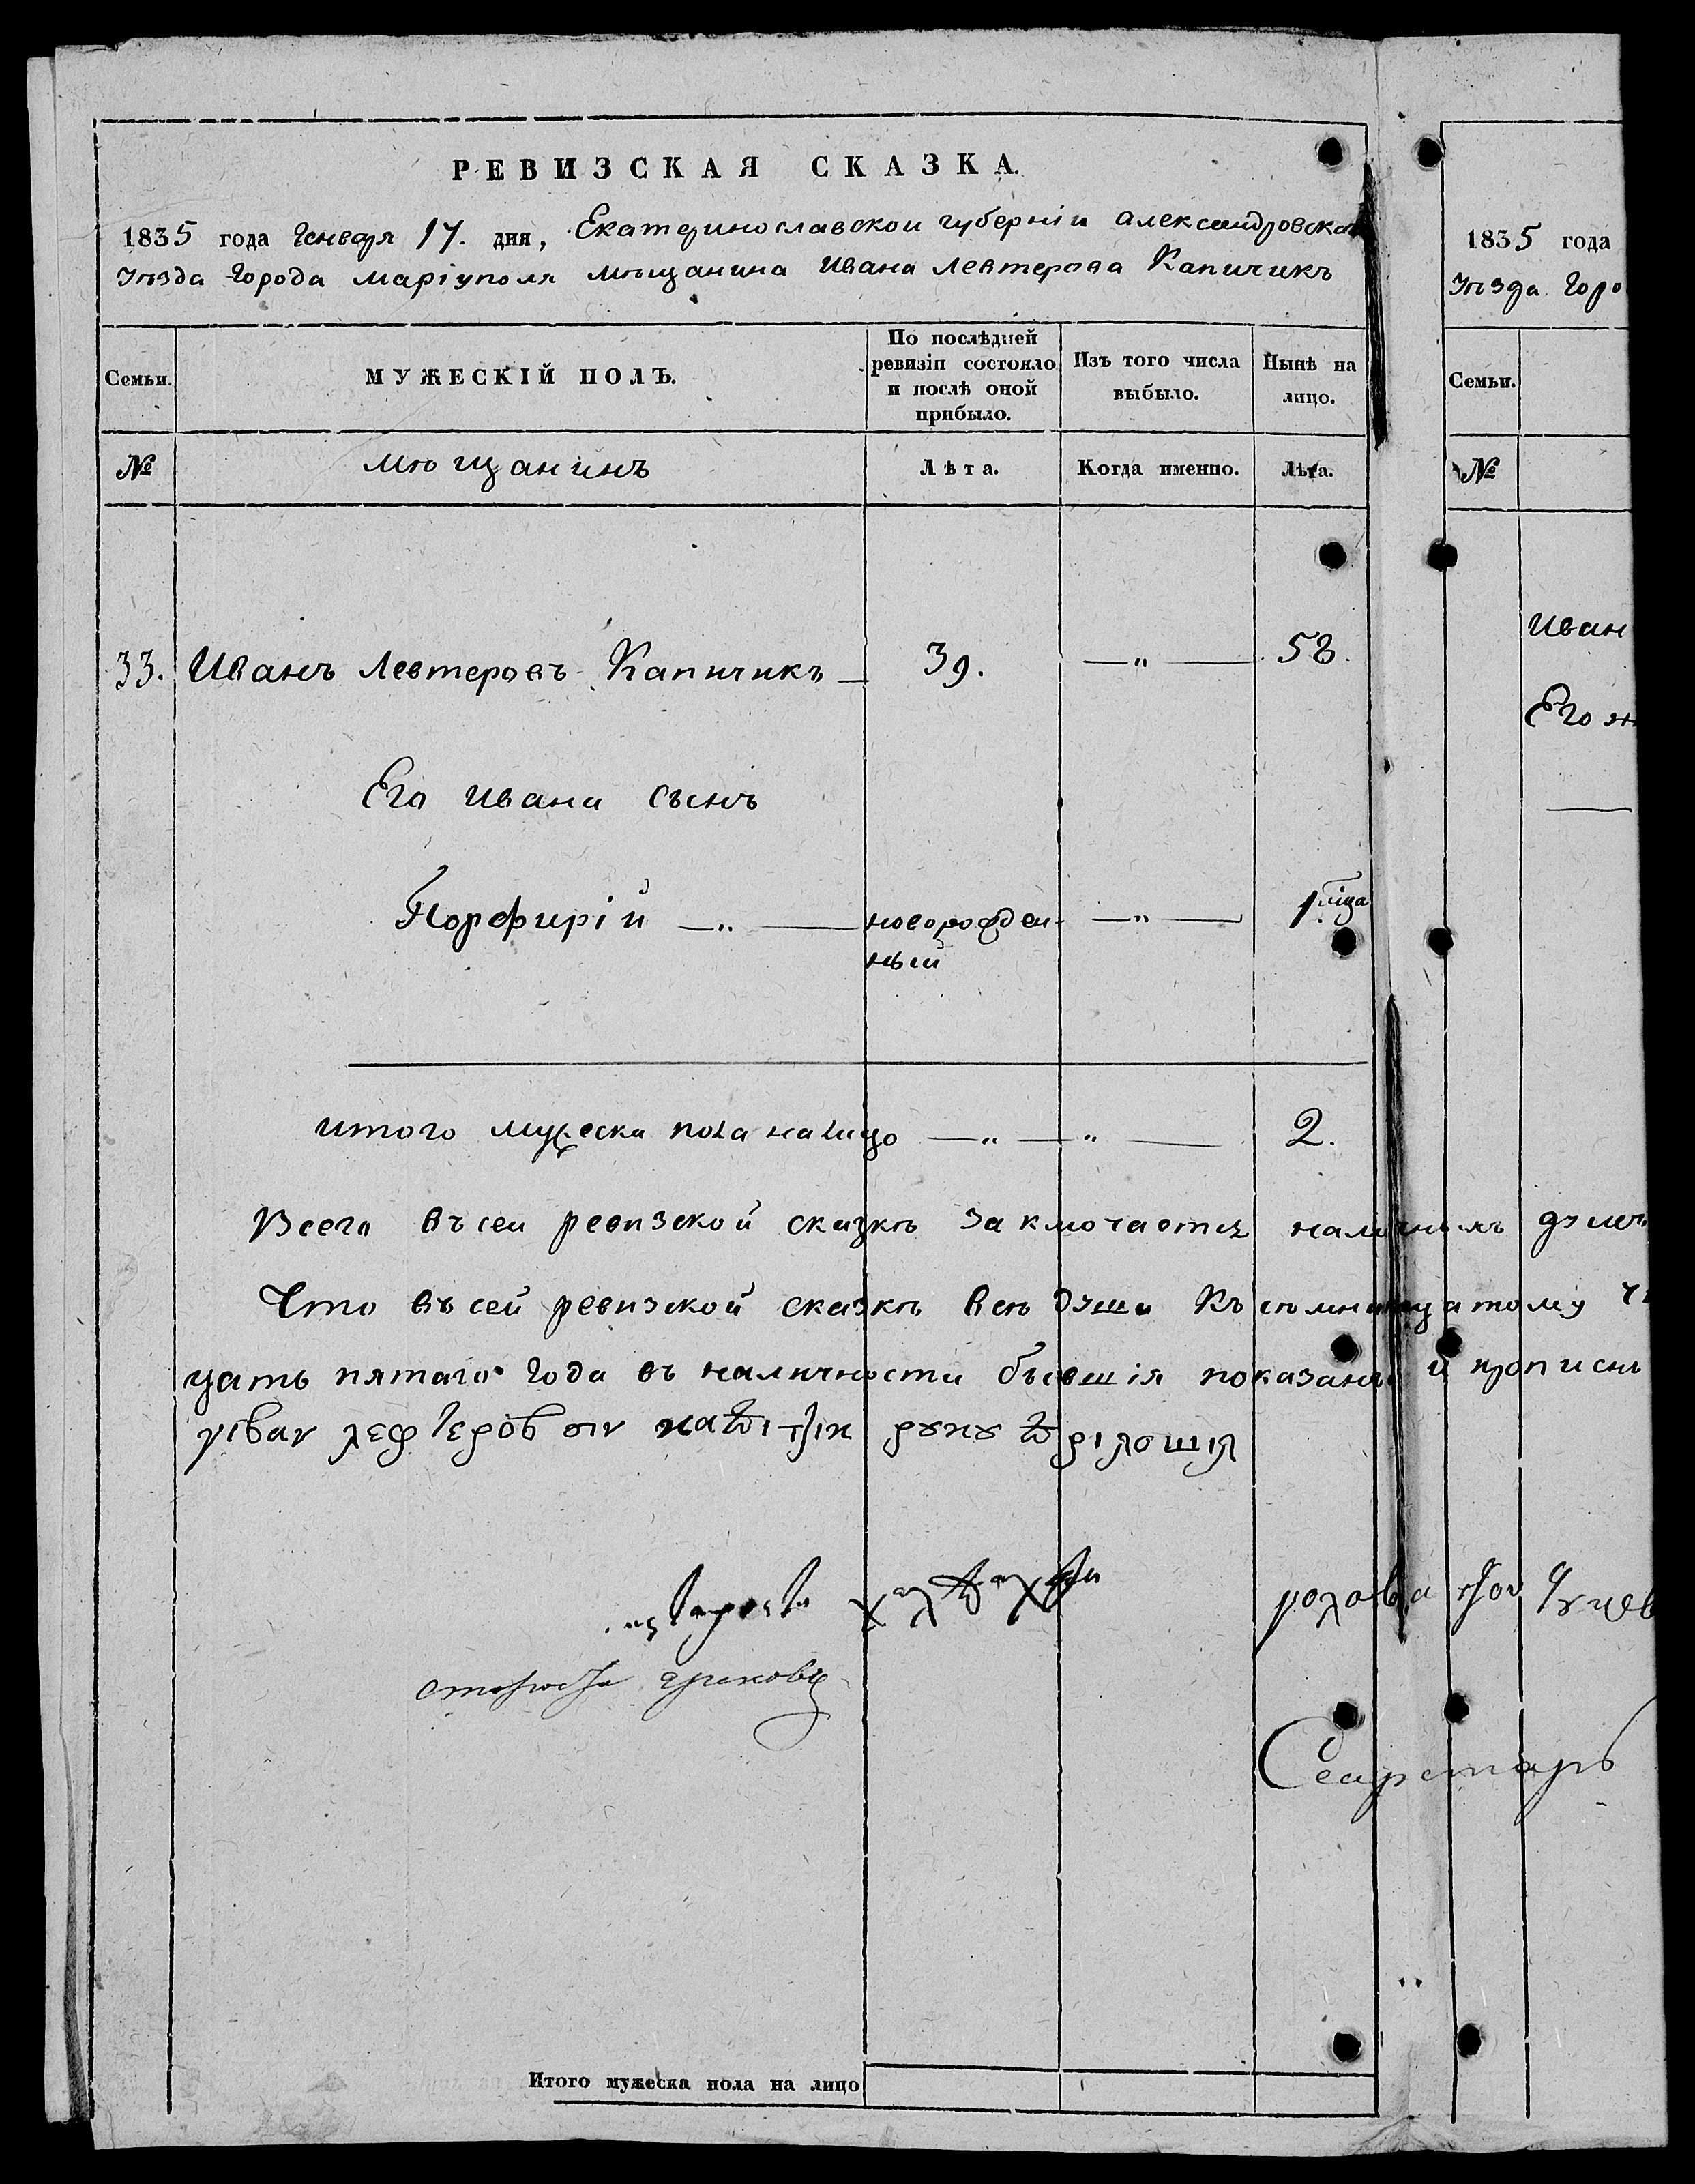 РЕВИЗСКАЯ СКАЗКА.
1835 года Генваря 17. дня, Екатеринославской губерніи Александровска
уѣзда города Маріуполя мѣщанина Ивана Левтерова Капичикъ
Семьи.
МУЖЕСКІЙ ПОЛЪ.
По послѣдней ревизіи состояло и послѣ оной прибыло.
Изъ того числа выбыло.
Нынѣ на лицо.
№
мѣщанинъ
Лѣта.
Когда именно.
Лѣта.
33. Иванъ Левтеровъ Капичикъ — 39. —"— 58.
Его Ивана сынъ
Порфирій —"— новорожден- —"— 1
ный
итого мужеска пола налицо —"—"— 2.
Всего въ сей ревизской сказкѣ заключается наличныхъ
Что въ сей ревизской сказкѣ всѣ души къ осмнатцатому
цать пятаго года въ наличности бывшія показаны и
ρукυ
староста
Секретарь
Итого мужеска пола на лицо
1835 года
уѣзда Горо
Семьи.
№
Иван
Его